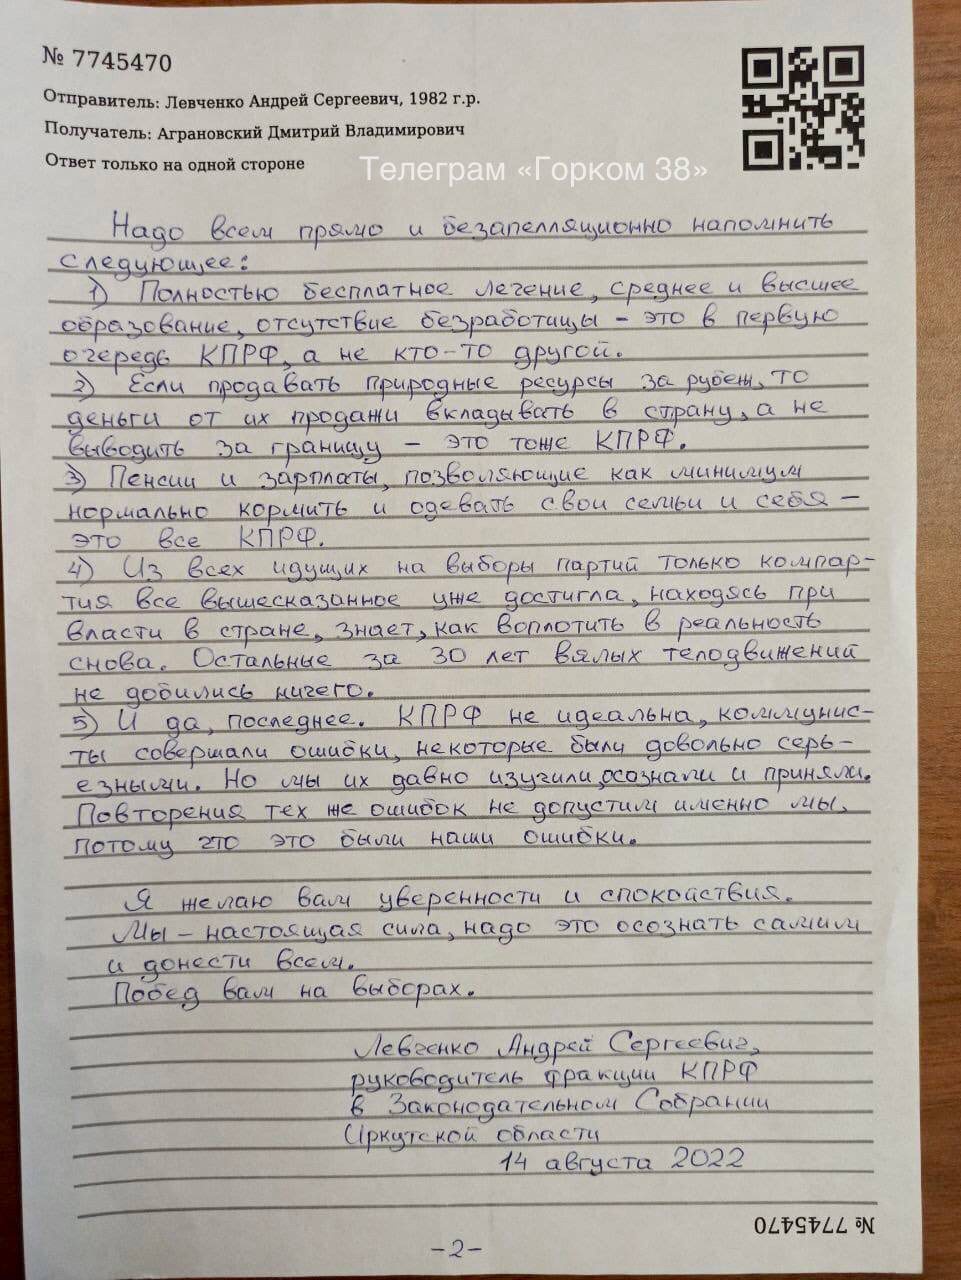 № 7745470
Отправитель: Левченко Андрей Сергеевич, 1982 г.р.
Получатель: Аграновский Дмитрий Владимирович
Ответ только на одной стороне
Телеграм «Горком 38»
Надо всем прямо и безапелляционно напомнить
следующее:
1) Полностью бесплатное лечение, среднее и высшее
образование, отсутствие безработицы – это в первую
очередь КПРФ, а не кто-то другой.
2) Если продавать природные ресурсы за рубеж, то
деньги от их продажи вкладывать в страну, а не
выводить за границу – это тоже КПРФ.
3) Пенсии и зарплаты, позволяющие как минимум
нормально кормить и одевать свои семьи и себя –
это все КПРФ.
4) Из всех идущих на выборы партий только компар-
тия все вышесказанное уже достигла, находясь при
власти в стране, знает, как воплотить в реальность
снова. Остальные за 30 лет вялых телодвижений
не добились ничего.
5) И да, последнее. КПРФ не идеальна, коммунис-
ты совершали ошибки, некоторые были довольно серь-
езными. Но мы их давно изучили, осознали и приняли.
Повторения тех же ошибок не допустим именно мы,
потому что это были наши ошибки.
Я желаю вам уверенности и спокойствия.
Мы – настоящая сила, надо это осознать самим
и донести всем.
Побед вам на выборах.
Левченко Андрей Сергеевич,
руководитель фракции КПРФ
в Законодательном Собрании
Иркутской области
14 августа 2022
№ 7745470
-2-